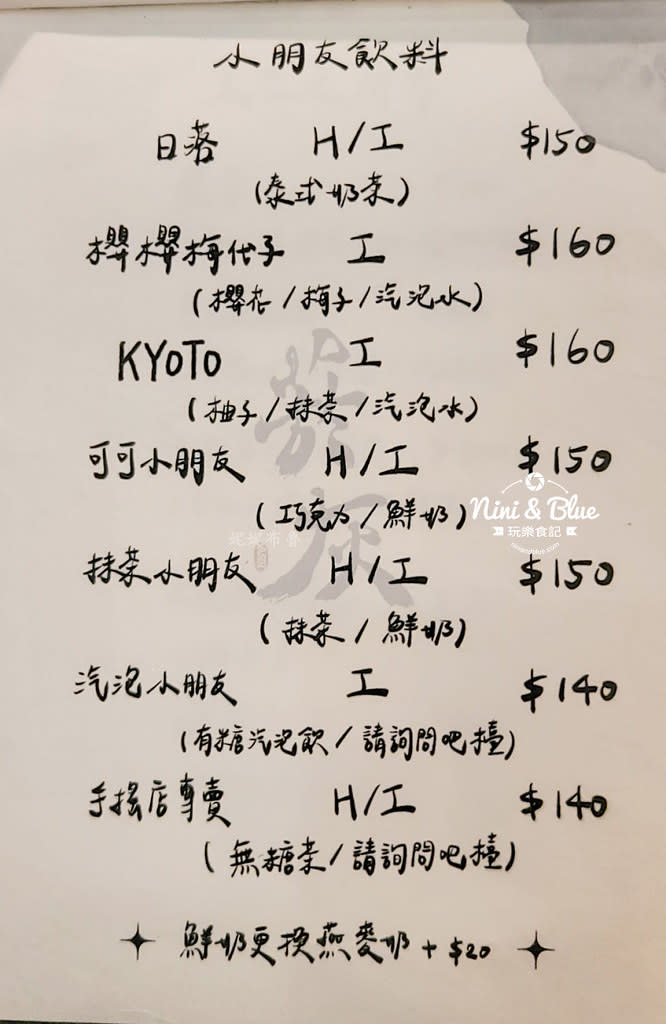 小朋友飲料
日落 H/I $150
(泰式奶茶)
櫻櫻梅代子 I $160
(櫻花/梅子/汽泡水)
KYoTo I $160
(柚子/抹茶/汽泡水)
可可小朋友 H/I $150
(巧克力/鮮奶)
Nini & Blue
玩樂食記
niniandblue.com
抹茶小朋友 H/I $150
(抹茶/鮮奶)
汽泡小朋友 I $140
(有糖汽泡飲/請詢問吧檯)
手搖店專賣 H/I $140
(無糖茶/請詢問吧檯)
鮮奶更換燕麥奶 + $20